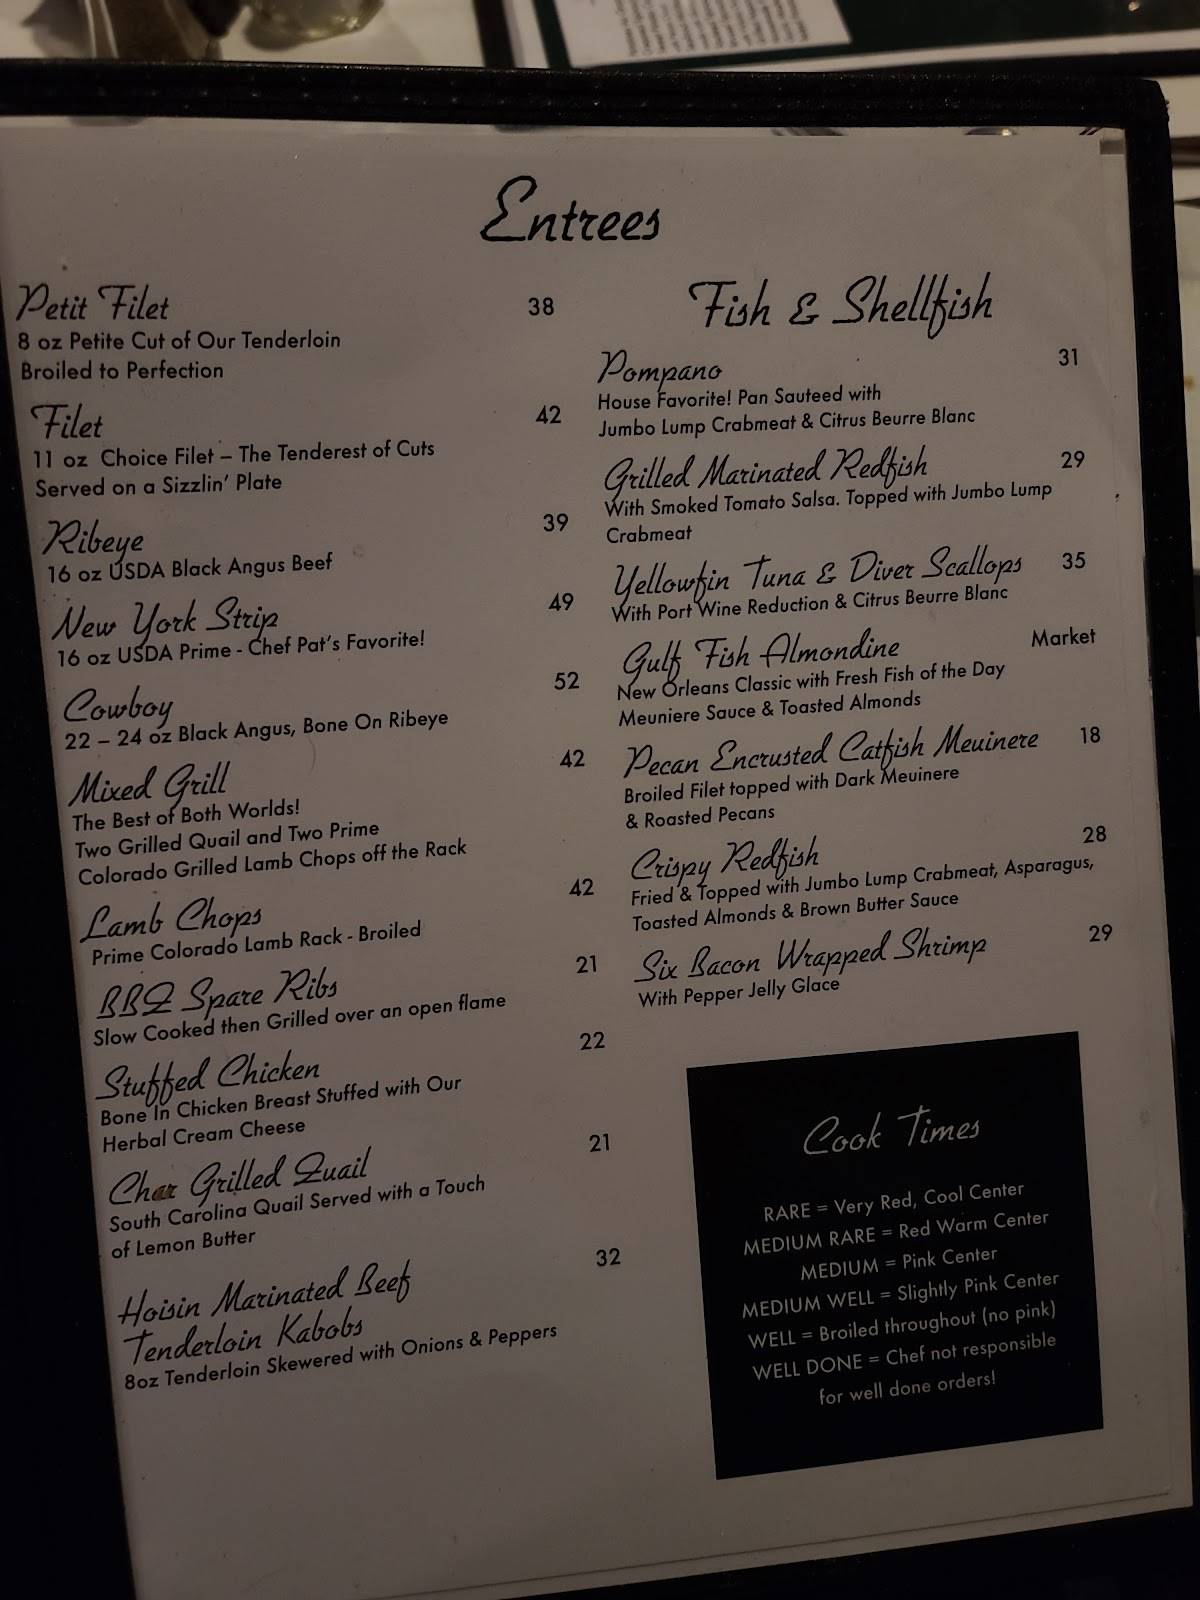 Entrees
Petit Filet 38
8 oz Petite Cut of Our Tenderloin
Broiled to Perfection
Filet 42
11 oz Choice Filet – The Tenderest of Cuts
Served on a Sizzlin' Plate
Ribeye 39
16 oz USDA Black Angus Beef
New York Strip 49
16 oz USDA Prime - Chef Pat's Favorite!
Cowboy 52
22 – 24 oz Black Angus, Bone On Ribeye
Mixed Grill 42
The Best of Both Worlds!
Two Grilled Quail and Two Prime
Colorado Grilled Lamb Chops off the Rack
Lamb Chops 42
Prime Colorado Lamb Rack - Broiled
BBQ Spare Ribs 21
Slow Cooked then Grilled over an open flame
Stuffed Chicken 22
Bone In Chicken Breast Stuffed with Our
Herbal Cream Cheese
Char Grilled Quail 21
South Carolina Quail Served with a Touch
of Lemon Butter
Hoisin Marinated Beef 32
Tenderloin Kabobs
8oz Tenderloin Skewered with Onions & Peppers
Fish & Shellfish
Pompano 31
House Favorite! Pan Sauteed with
Jumbo Lump Crabmeat & Citrus Beurre Blanc
Grilled Marinated Redfish 29
With Smoked Tomato Salsa. Topped with Jumbo Lump
Crabmeat
Yellowfin Tuna & Diver Scallops 35
With Port Wine Reduction & Citrus Beurre Blanc
Gulf Fish Almondine Market
New Orleans Classic with Fresh Fish of the Day
Meuniere Sauce & Toasted Almonds
Pecan Encrusted Catfish Meuinere 18
Broiled Filet topped with Dark Meuinere
& Roasted Pecans
Crispy Redfish 28
Fried & Topped with Jumbo Lump Crabmeat, Asparagus,
Toasted Almonds & Brown Butter Sauce
Six Bacon Wrapped Shrimp 29
With Pepper Jelly Glace
Cook Times
RARE = Very Red, Cool Center
MEDIUM RARE = Red Warm Center
MEDIUM = Pink Center
MEDIUM WELL = Slightly Pink Center
WELL = Broiled throughout (no pink)
WELL DONE = Chef not responsible
for well done orders!